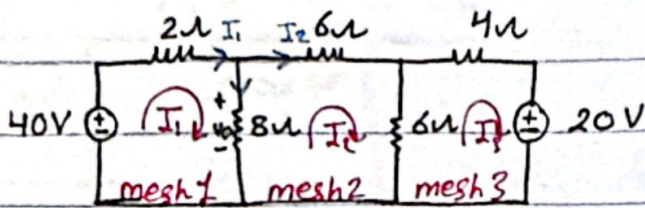 2Ω I₁ I₂ 6Ω 4Ω
40V I₁ + - 8Ω I₂ 6Ω I₃ 20V
mesh1 mesh2 mesh3